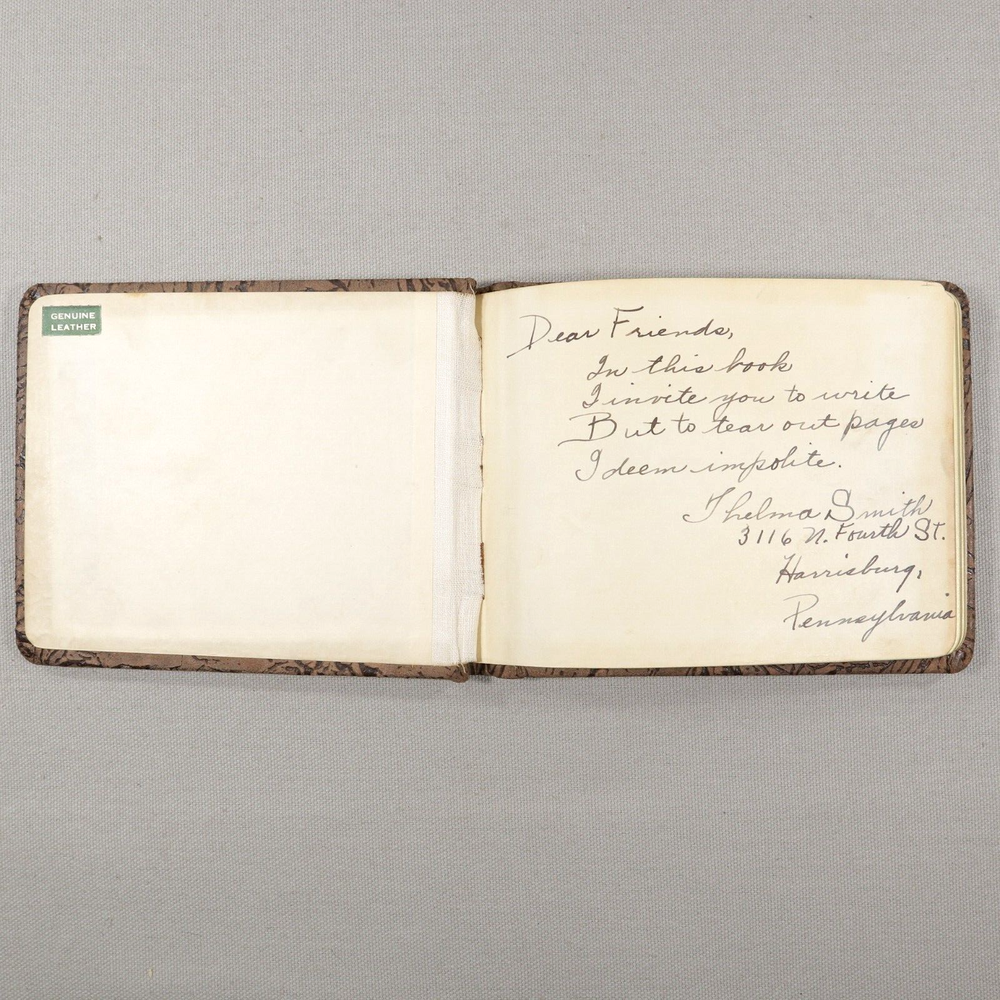 GENUINE
LEATHER
Dear Friends,
In this book
I invite you to write
But to tear out pages
I deem impolite.
Thelma Smith
3116 N. Fourth St.
Harrisburg,
Pennsylvania